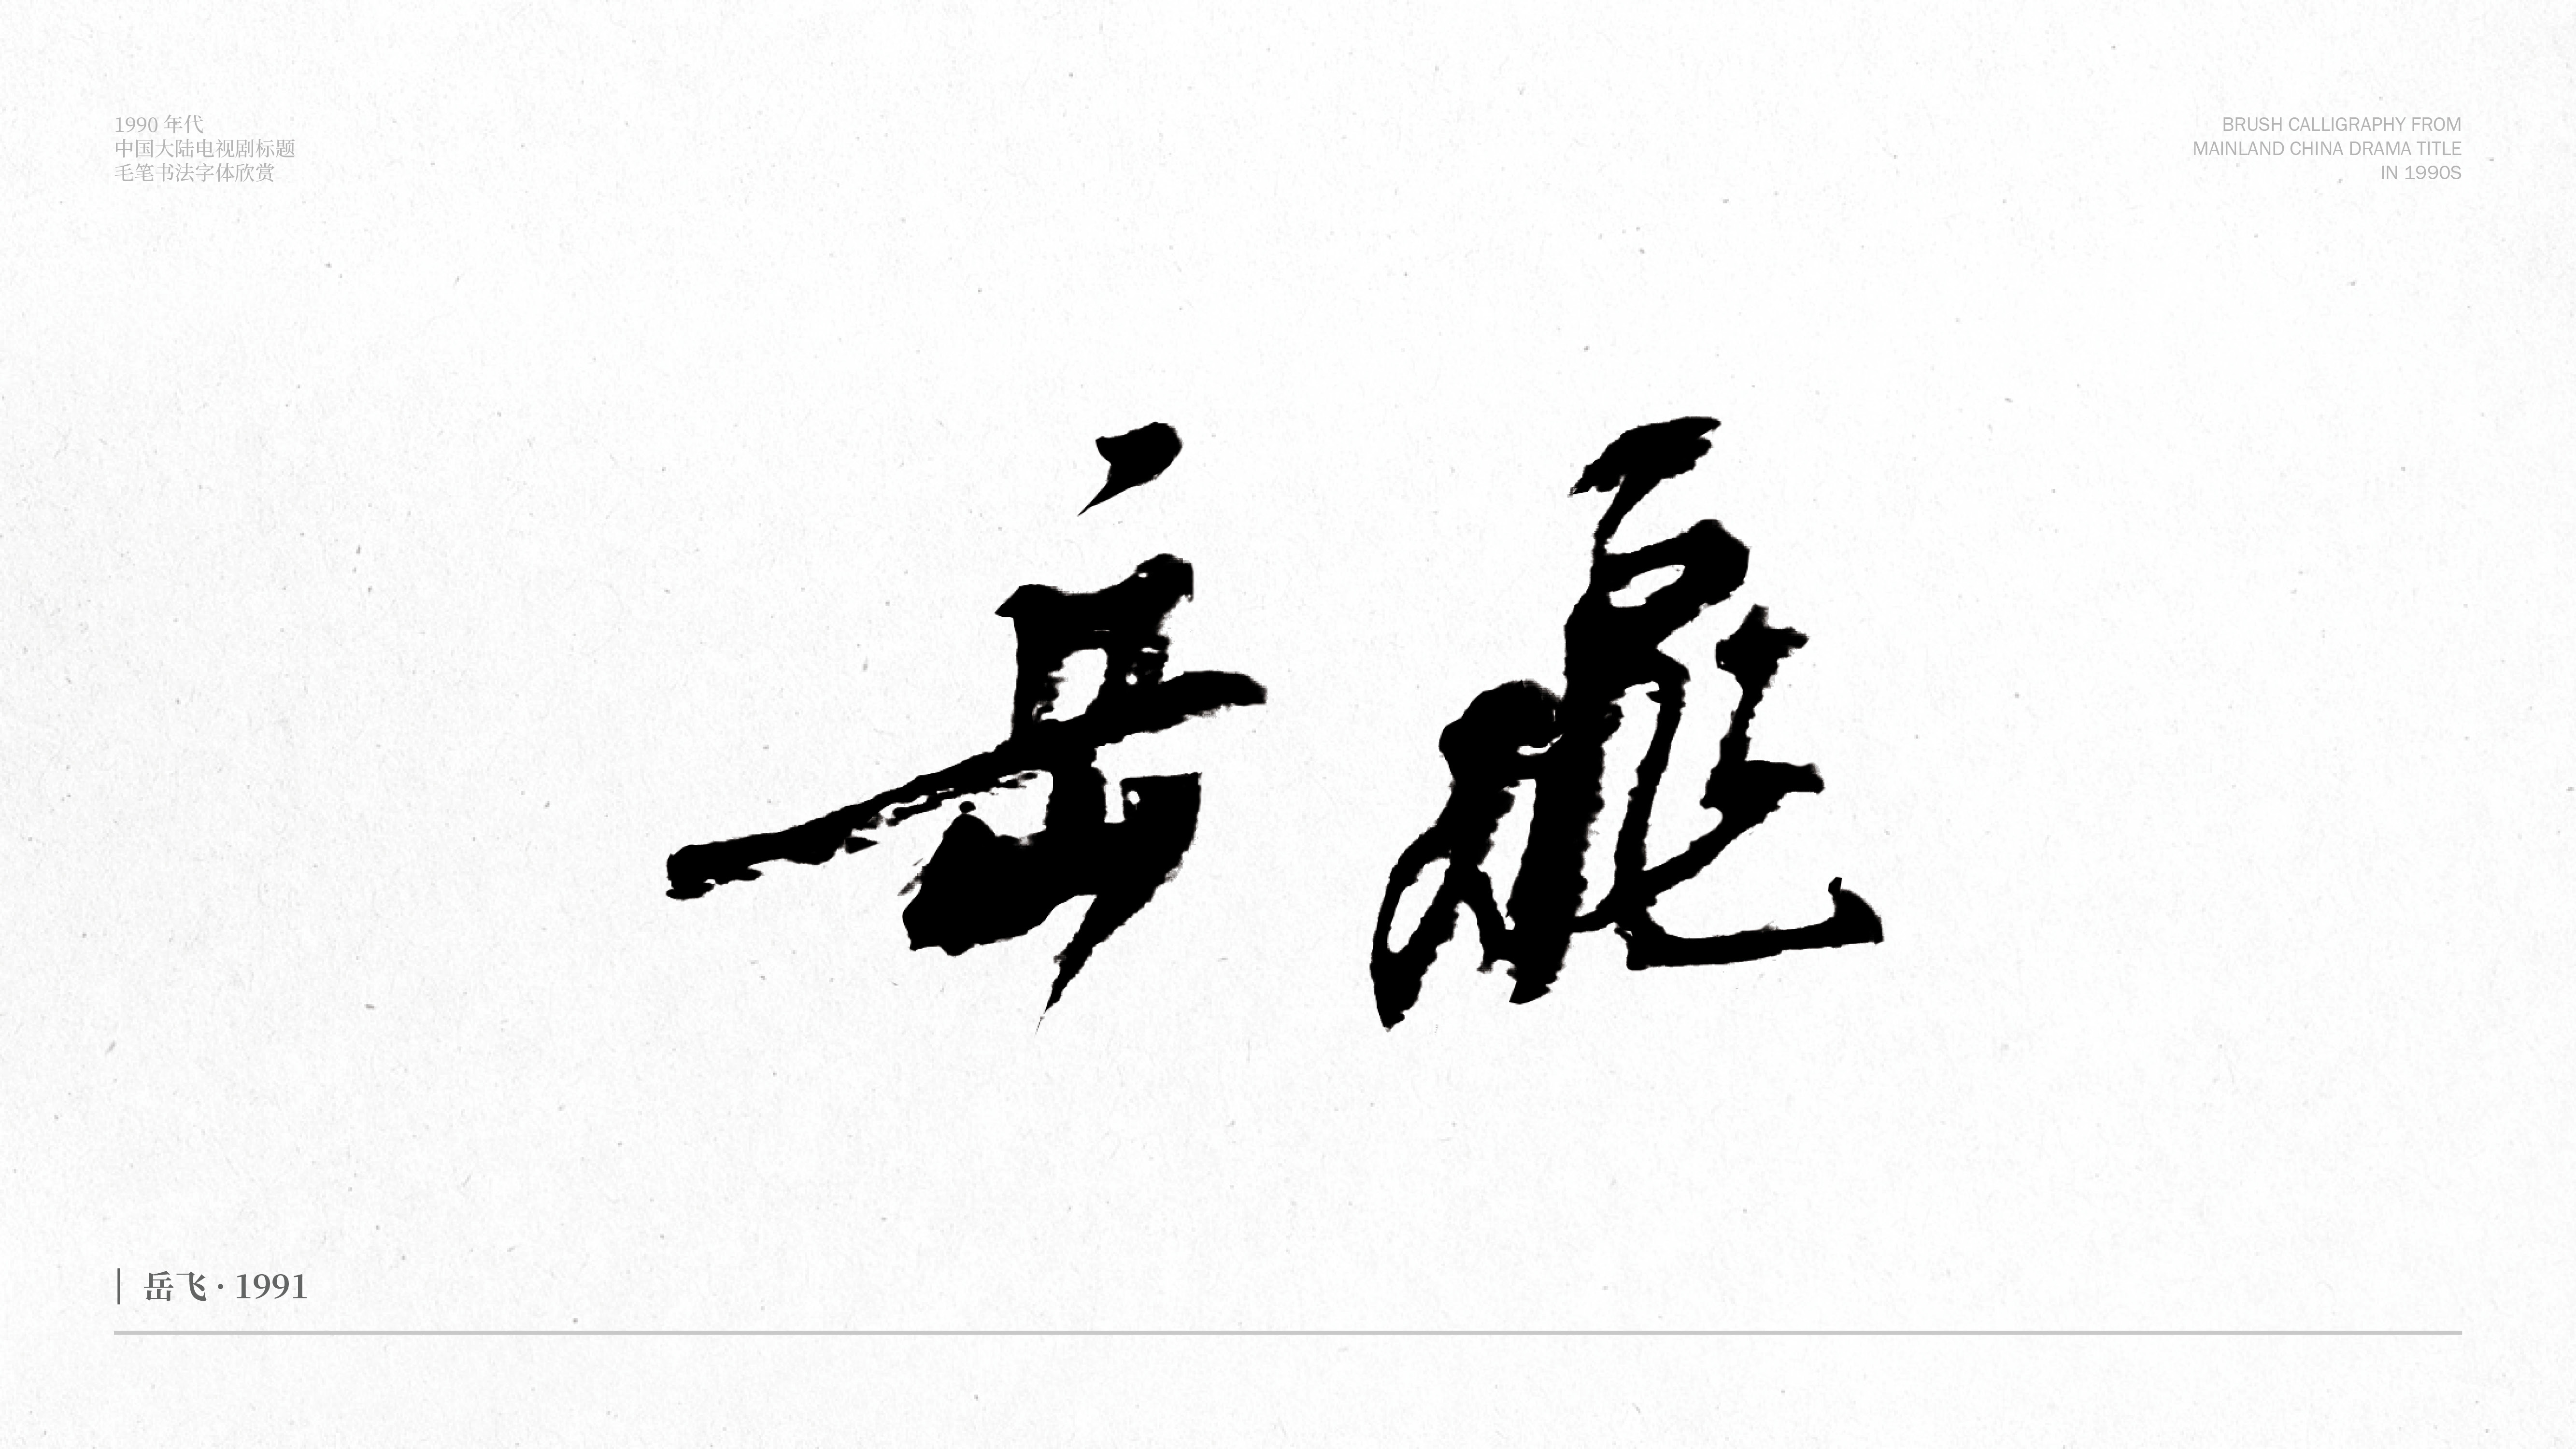 1990 年代
中国大陆电视剧标题
毛笔书法字体欣赏
BRUSH CALLIGRAPHY FROM
MAINLAND CHINA DRAMA TITLE
IN 1990S
岳飛
岳飞 · 1991